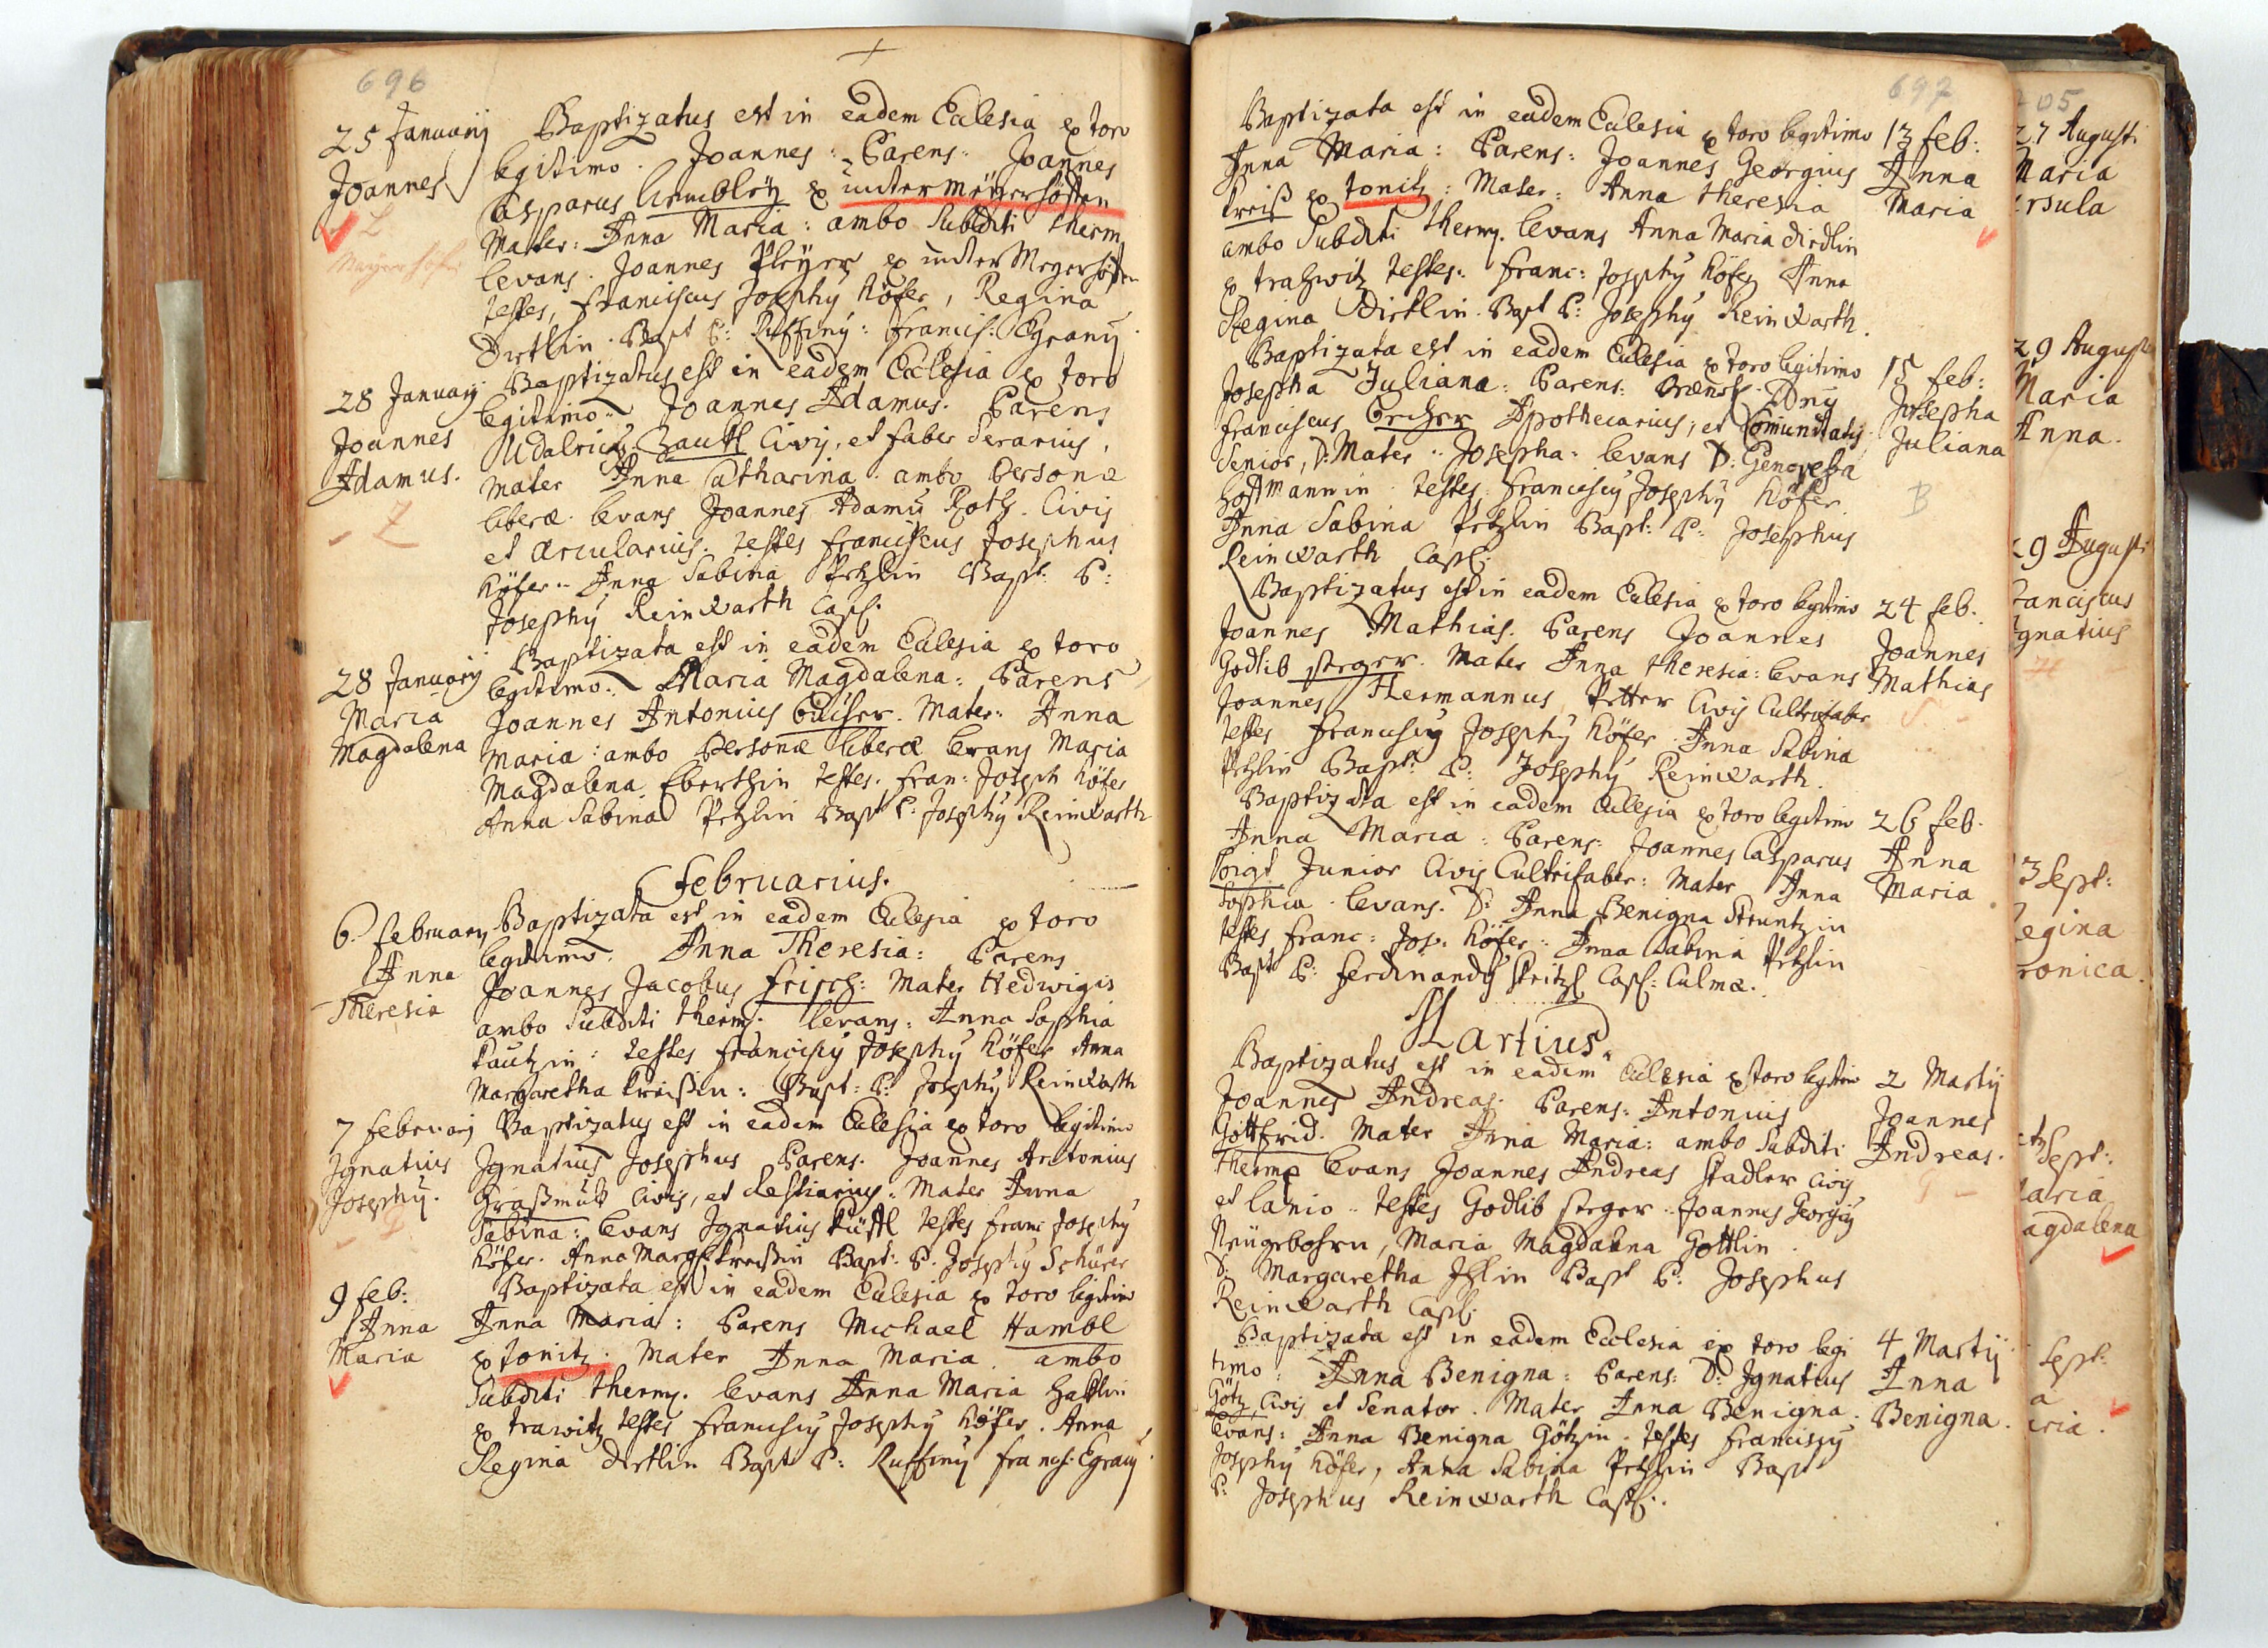 696
25 Januarij
Joannes
Mayerhöfen
Baptizatus est in eadem Eclesia ex toro
legitimo. Joannes: Parens: Joannes
Casparus ex unter Meyerhöffen
Mater: Anna Maria: ambo Subditi therm.
levans. Joannes Pleyer ex unter Meyerhöffen
testes, Franciscus Josephy Höfer, Regina
Dirtlin. Bapt P: Ruffiny: Francis: Egrany.
28 Januarij
Joannes
Adamus.
Z
Baptizatus est in eadem Ecclesia ex toro
legitimo. Joannes Adamus. Parens
Udalricus Civis, et faber Serarius,
Mater Anna Catharina. ambo Personæ
liberæ. levans Joannes Adamus Roth. Civis
et Arcularius. testes Franciscus Josephus
Höfer. Anna Sabina Petzlin Bapt: P:
Josephy Reinwarth Capl:
28 Januarij
Maria
Magdalena
Baptizata est in eadem Eclesia ex toro
legitimo. Maria Magdalena: Parens
Joannes Antonius. Mater: Anna
Maria: ambo Personæ liberæ levans Maria
Magdalena Eberthin testes. Fran: Joseph Höfer
Anna Sabina Petzlin Bapt P. Josephy Reinwarth
Februarius.
6. February
Anna
Theresia
Baptizata est in eadem Eclesia ex toro
legitimo. Anna Theresia: Parens
Joannes Jacobus Frisch: Mater Hedwigis
ambo Subditi therm. levans: Anna Sophia
Kautzin: testes Francisci Josephy Höfer Anna
Margaretha Kreißin: Bapt: P: Josephy Reinwarth
7 februarij
Ignatius
Josephy.
G
Baptizatus est in eadem Eclesia ex toro legitimo
Ignatius Josephus Parens. Joannes Antonius
Graßmuk Civis, et Restiarius: Mater Anna
Sabina: levans Ignatius testes Franc Josephy
Höfer. Anna Marg: Kreißin Bapt: P. Josephy Schürer
9 feb:
Anna
Maria
Baptizata est in eadem Eclesia ex toro legitimo
Anna Maria: Parens Michael Hambl
ex tonitz. Mater Anna Maria. ambo
Subditi therm. levans Anna Maria
ex trawitz testes Francisci Josephy Höfer. Anna
Regina Dirtlin Bapt P: Ruffiny Francis. Egrany.
697
Baptizata est in eadem Eclesia ex toro legitimo
Anna Maria: Parens: Joannes Georgius
Kreiß ex tonitz: Mater: Anna Theresia
ambo Subditi therm. levans Anna Maria Dirdlin
ex trahwitz testes: Franc: Josephy Höfer Anna
Regina Dirtlin. Bapt P: Josephy Reinwarth.
13 feb:
Anna
Maria
Baptizata est in eadem Eclesia ex toro legitimo
Josepha Juliana: Parens:
Franciscus Apothecarius, et Comunitatis
Senior, D: Mater: Josepha: levans D: Genovefa
Hoffmannin testes Francisci Josephy Höfer.
Anna Sabina Petzlin Bapt: P: Josephus
Reinwarth Capl:
15 feb:
Josepha
Juliana
B
Baptizatus est in eadem Eclesia ex toro legitimo
Joannes Mathias. Parens Joannes
Godlib Steger. Mater Anna Theresia: levans
Joannes Hermannus Petter Civis Cultrifaber
testes Francisci Josephy Höfer. Anna Sabina
Petzlin Bapt: P: Josephy Reinwarth.
24 feb.
Joannes
Mathias
S.
Baptizata est in eadem Eclesia ex toro legitimo
Anna Maria: Parens: Joannes Casparus
Voigt Junior Civis Cultrifaber: Mater Anna
Sophia. levans. D: Anna Benigna Struntzin
testes Franc: Jos: Höfer: Anna Sabina Petzlin
Bapt P: Ferdinandy Capl: Culmæ.
26 feb.
Anna
Maria
Martius.
Baptizatus est in eadem Eclesia ex toro legitimo
Joannes Andreas. Parens: Antonius
Gottfrid. Mater Anna Maria: ambo Subditi
Therm levans Joannes Andreas Stadler Civis
et lanio. testes Godlib Steger. Joannes Georgy
Neugebohrn, Maria Magdalena Gottlin.
S. Margaretha Bapt P: Josephus
Reinwarth Capl:
2 Martij
Joannes
Andreas.
G
Baptizata est in eadem Ecclesia ex toro legi
timo: Anna Benigna: Parens: D: Ignatius
Götz, Civis et Senator. Mater Anna Benigna.
levans: Anna Benigna Götzin. testes Franciscy
Josephy Höfer, Anna Sabina Petzlin Bapt
P: Josephus Reinwarth Capl:.
4 Martij
Anna
Benigna.
705
27 Augusti
Maria
Ursula
29 August
Maria
Anna.
29 Augusti
Franciscus
Ignatius
H
3 Sept:
Regina
ronica.
Sept:
Maria
agdalena
Sept:
a
ria.